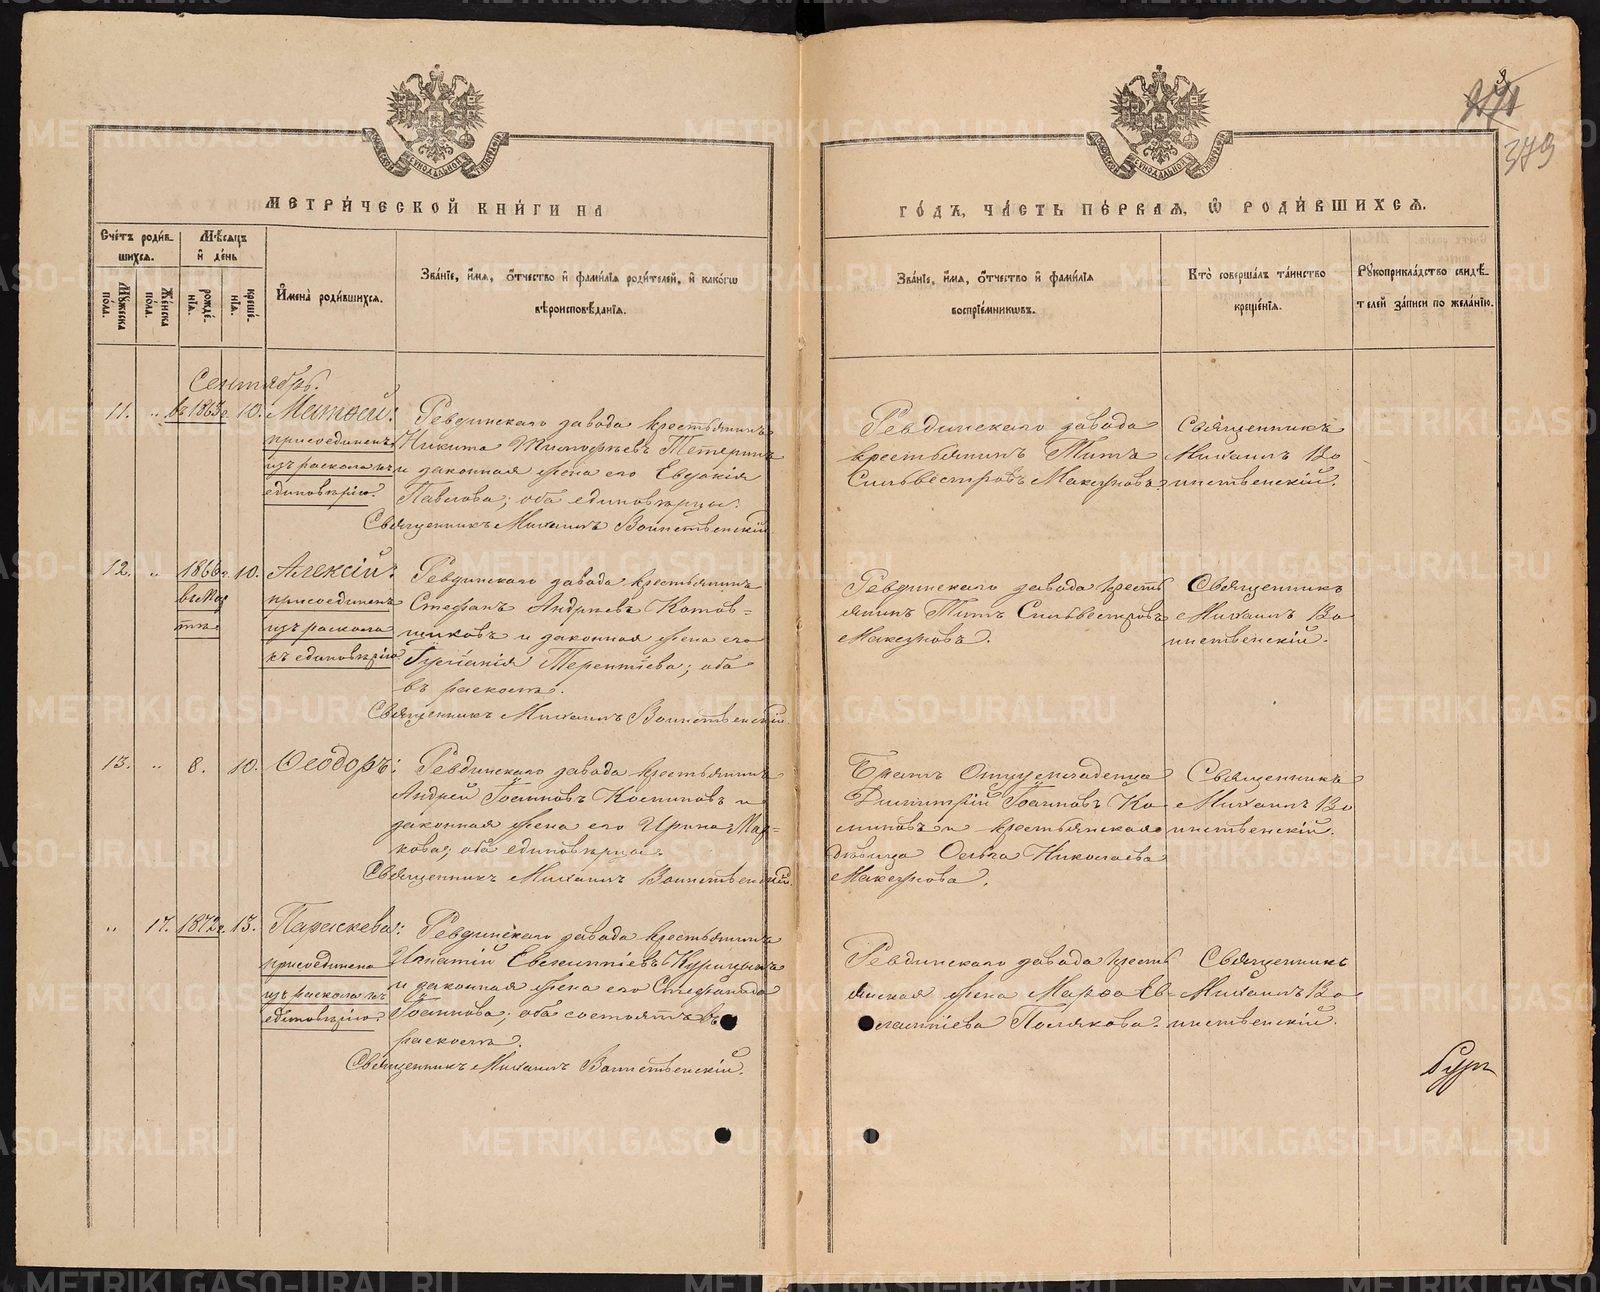 МЕТРИ́ЧЕСКОЙ КНИ́ГИ НА
Сче́тъ роди́в-
шихся.
Мѣ́сяцъ
и҆ де́нь
Мꙋ́жеска
по́ла.
Же́нска
по́ла.
рожде́-
нїя.
креще́-
нїя.
И҆мена̀ роди́вшихся.
Зва́нїе, и҆́мя, ѻ҆́тчество и҆ фами́лїя роди́телей, и҆ како́гѡ
вѣроисповѣ́данїя.
Сентябрь.
11. " въ 1863 г. 10. Матѳей:
присоединенъ
изъ раскола къ
единовѣрію.
Ревдинскаго завода крестьянинъ
Никита Тимофѣевъ Тетеринъ
и законная жена его Евдокія
Павлова; оба единовѣрцы.
Священникъ Михаилъ Воинственскій
12. " 1866 г. 10. Алексій:
въ Мар
тѣ
присоединенъ
изъ раскола
къ единовѣрію
Ревдинскаго завода крестьянинъ
Стефанъ Андреевъ Котов-
щиковъ и законная жена его
Терентіева; оба
въ расколѣ.
Священникъ Михаилъ Воинственскій
13. " 8. 10. Ѳеодоръ:
Ревдинскаго завода крестьянинъ
Андрей Іоанновъ Косиновъ и
законная жена его Ирина Мар-
кова; оба единовѣрцы.
Священникъ Михаилъ Воинственскій
" 17. 1872 г. 13. Параскева:
присоединена
изъ раскола къ
единовѣрію
Ревдинскаго завода крестьянинъ
Игнатій Евсигніевъ Курицынъ
и законная жена его Стефанида
Іоаннова; оба состоятъ въ
расколѣ.
Священникъ Михаилъ Воинственскій.
379
ГО́ДЪ, ЧА́СТЬ ПЕ́РВАЯ, Ѡ҆ РОДИ́ВШИХСЯ.
Зва́нїе, и҆́мя, ѻ҆́тчество и҆ фами́лїя
воспрїе́мникѡвъ.
Кто̀ соверша́лъ та́инство
креще́нїя.
Рꙋкоприкла́дство свидѣ́-
телей за́писи по жела́нїю.
Ревдинскаго завода
крестьянинъ Титъ
Сильвестровъ Макаровъ.
Священникъ
Михаилъ Во
инственскій.
Ревдинскаго завода кресть
янинъ Титъ Сильвестровъ
Макаровъ.
Священникъ
Михаилъ Во
инственскій.
Братъ Отцу младенца
Димитрій Іоанновъ Ко-
синовъ и крестьянская
дѣвица Ольга Николаева
Макарова.
Священникъ
Михаилъ Во
инственскій.
Ревдинскаго завода кресть
янская жена Марѳа Ев-
Полякова.
Священникъ
Михаилъ Во
инственскій.